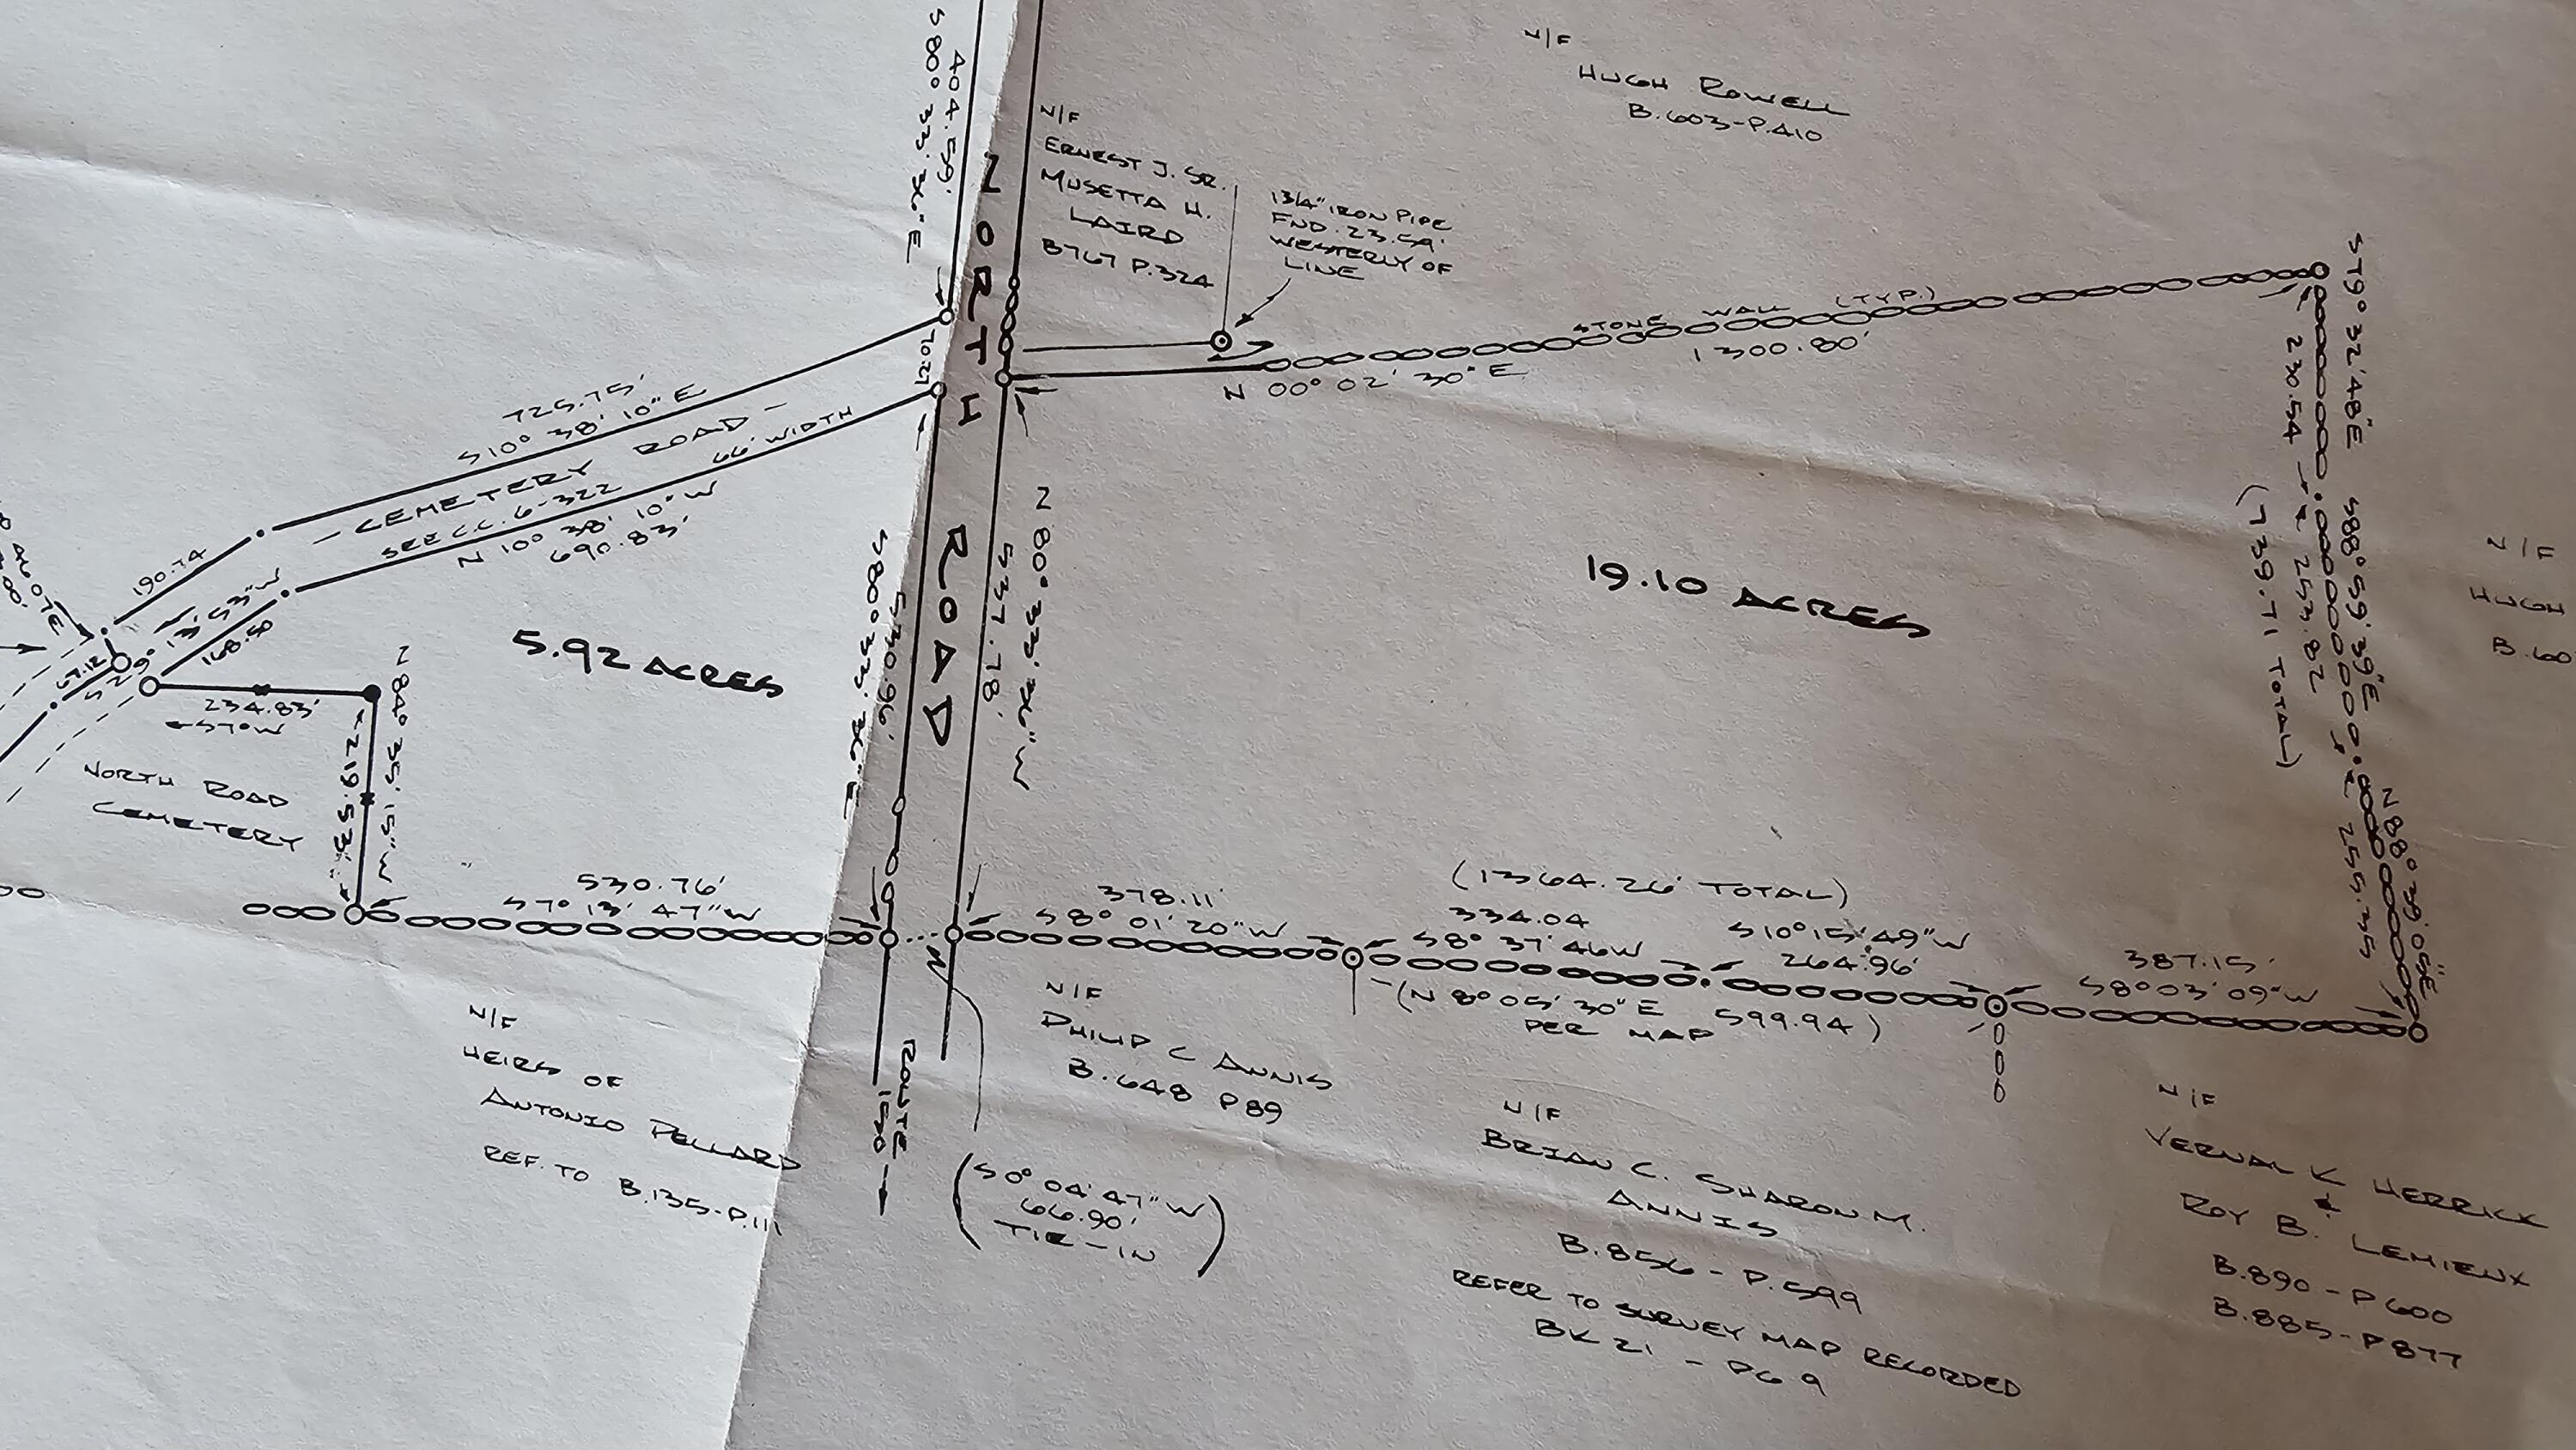 N/F
HUGH ROWELL
B.603-P.410
404.59'
S 80° 33' 36" E
N/F
ERNEST J. SR.
MUSETTA H.
LAIRD
B767 P.324
13/4" IRON PIPE
FND. 23.59'
WESTERLY OF
LINE
STONE WALL (TYP.)
1300.80'
N 00° 02' 30" E
S79° 32' 48" E
230.54
S88° 59' 39" E
253.82
(739.71 TOTAL)
N88° 39' 05" E
255.35
N/F
HUGH
B.60
NORTH ROAD
725.75'
S10° 38' 10" E
- CEMETERY ROAD -
SEE C.C. 6-322
66' WIDTH
N 10° 38' 10" W
690.83'
190.74
13' 53" W
168.50
67.12
234.83'
S7° W
N 84° 35' 15" W
219.53'
NORTH ROAD
CEMETERY
5.92 ACRES
S 80° 33' 36" E
530.96'
537.78'
N 80° 33' 36" W
19.10 ACRES
530.76'
S7° 13' 47" W
378.11'
S8° 01' 20" W
(1364.26' TOTAL)
334.04
S8° 37' 46 W
S10° 15' 49" W
264.96'
387.15'
S8° 03' 09" W
(N 8° 05' 30" E 599.94)
PER MAP
N/F
HEIRS OF
ANTONIO PELLARD
REF. TO B.135-P.111
ROUTE
150
(S0° 04' 47" W
66.90'
TIE-IN)
N/F
PHILIP C ANNIS
B.648 P89
N/F
BRIAN C. SHARON M.
ANNIS
B.856 - P.599
REFER TO SURVEY MAP RECORDED
BK 21 - PG 9
N/F
VERNAL K HERRICK
&
ROY B. LEMIEUX
B.890 - P600
B.885 - P877